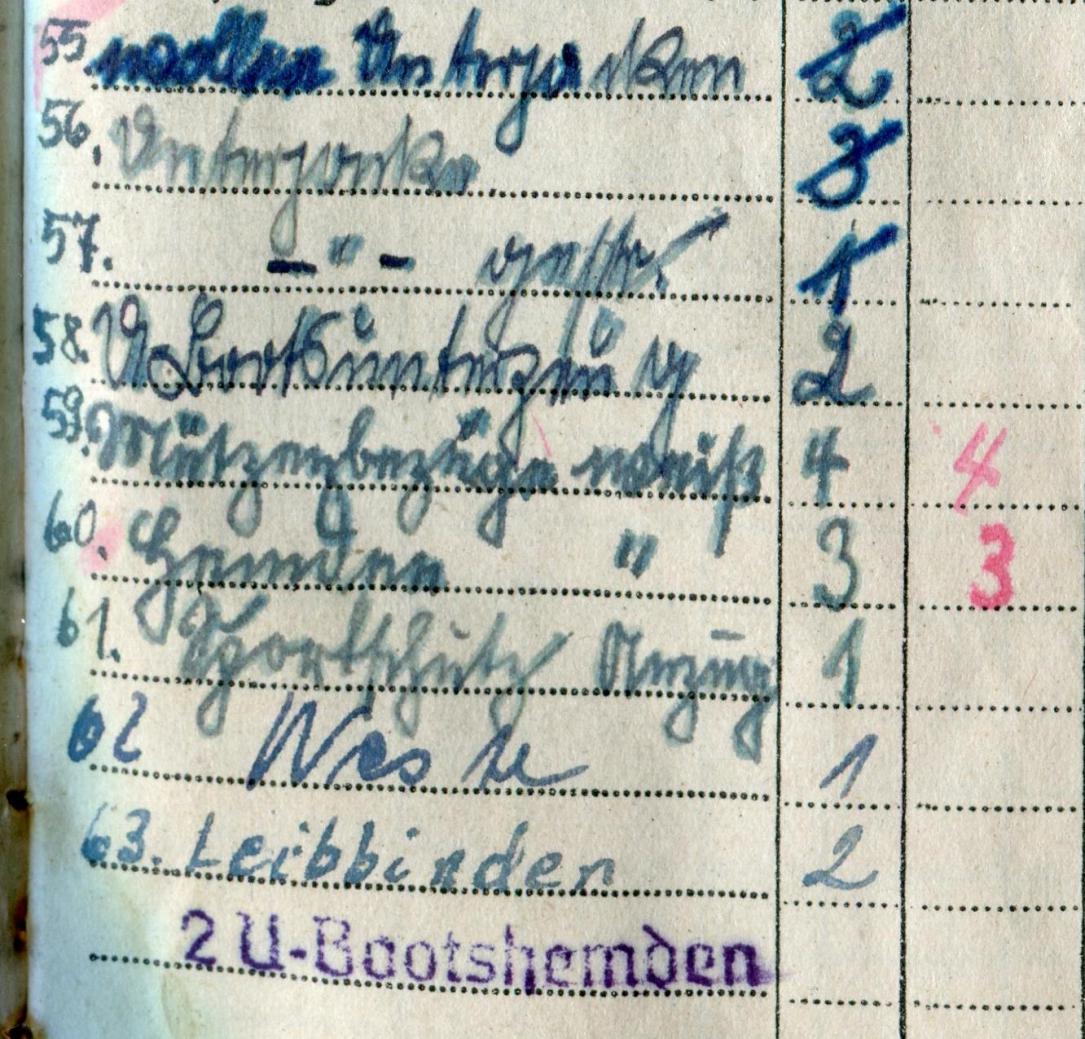 55. wollen Unterjacken 2
56. Unterjacke 3
57. - " - gestr. 1
58. U Bootsunterzeug 2
59. Mützenbezüge weiß 4 4
60. Hemden " 3 3
61. Sportschutz Anzug 1
62 Weste 1
63. Leibbinden 2
2 U-Bootshemden